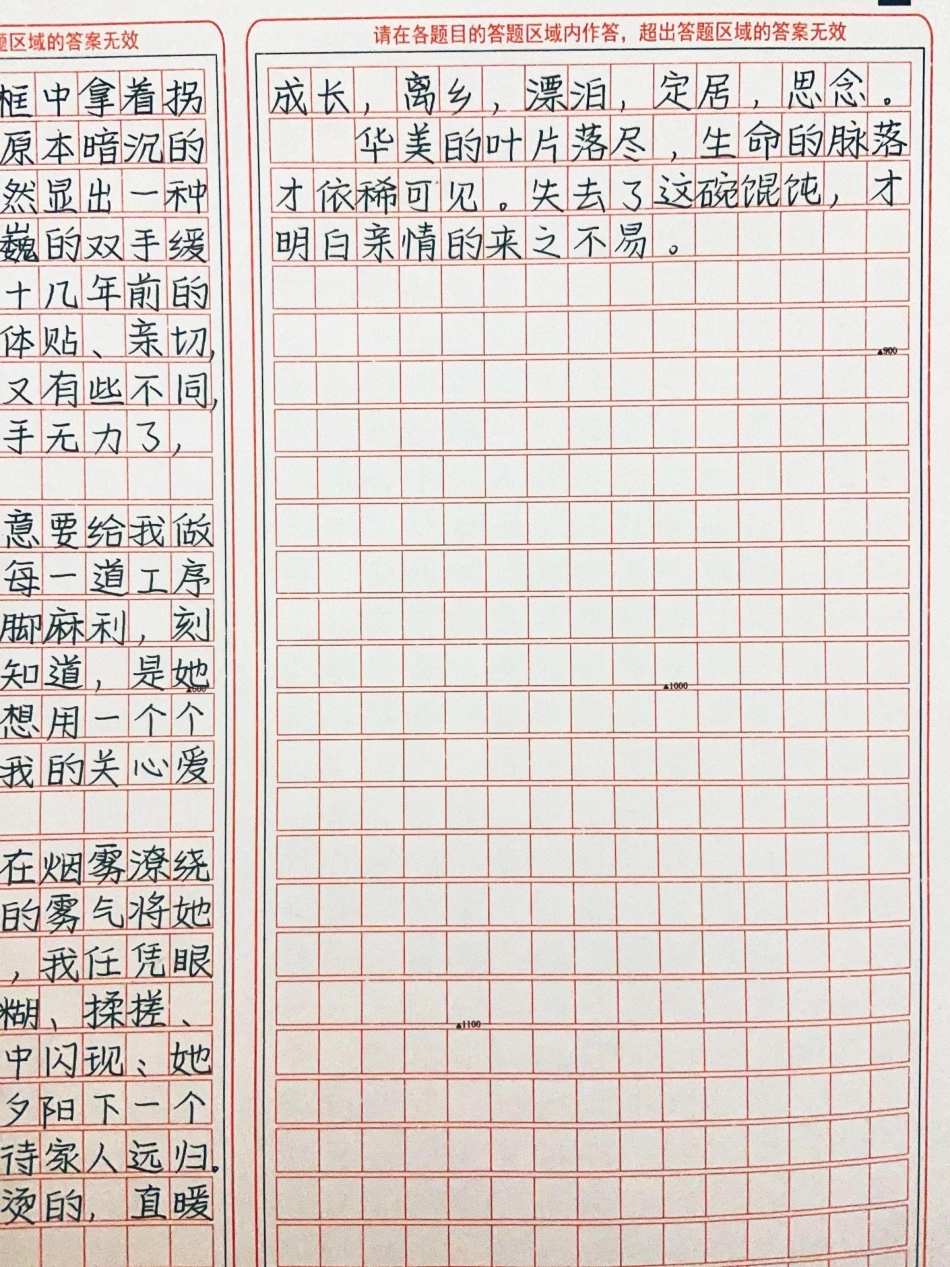 题区域的答案无效
框中拿着拐
原本暗沉的
然显出一种
巍的双手缓
十几年前的
体贴、亲切,
又有些不同,
手无力了,
意要给我做
每一道工序
脚麻利,刻
知道,是她
▲800
想用一个个
我的关心爱
在烟雾潦绕
的雾气将她
,我任凭眼
糊、揉搓、
中闪现;她
夕阳下一个
待家人远归。
烫的,直暖
请在各题目的答题区域内作答,超出答题区域的答案无效
成长,离乡,漂泊,定居,思念。
华美的叶片落尽,生命的脉落
才依稀可见。失去了这碗馄饨,才
明白亲情的来之不易。
▲900
▲1000
▲1100